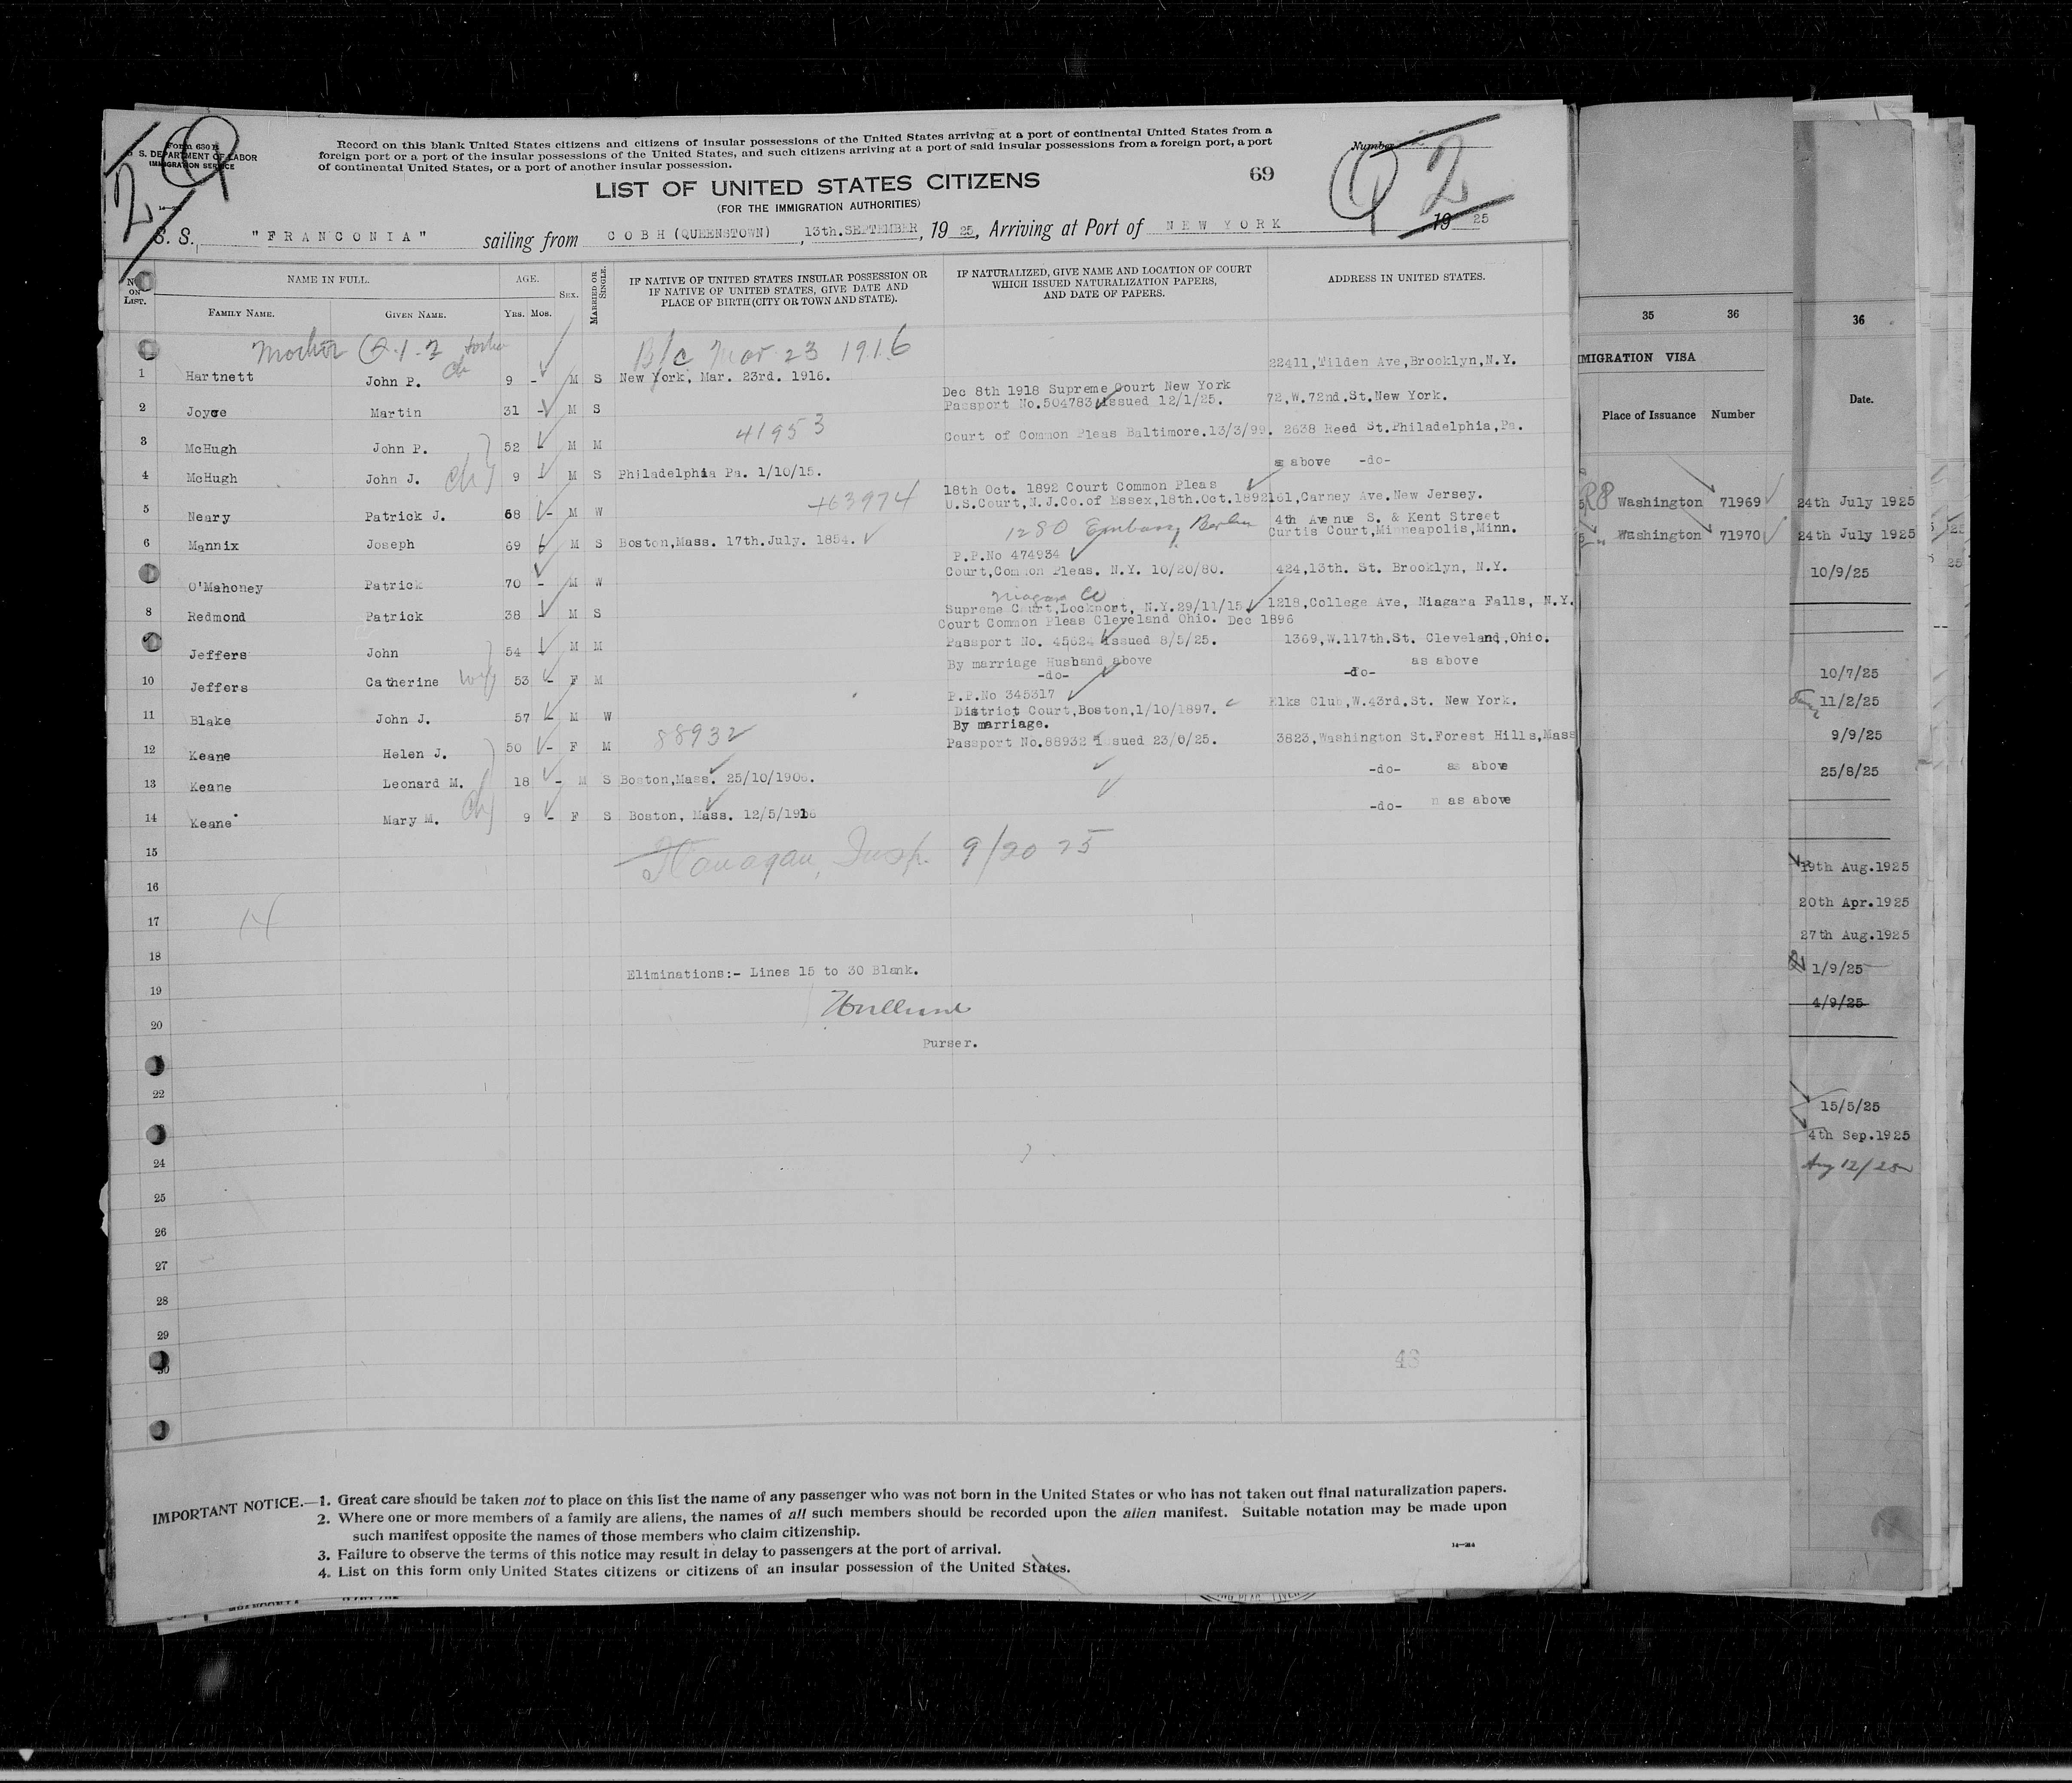 Form 630 B
U. S. DEPARTMENT OF LABOR
IMMIGRATION SERVICE
Record on this blank United States citizens and citizens of insular possessions of the United States arriving at a port of continental United States from a
foreign port or a port of the insular possessions of the United States, and such citizens arriving at a port of said insular possessions from a foreign port, a port
of continental United States, or a port of another insular possession.
Number
2
2
69
LIST OF UNITED STATES CITIZENS
(FOR THE IMMIGRATION AUTHORITIES)
S. S. "FRANCONIA" sailing from COBH (QUEENSTOWN), 13th.SEPTEMBER, 19 25, Arriving at Port of NEW YORK 19 25
No. ON LIST. NAME IN FULL. AGE. SEX. MARRIED OR SINGLE. IF NATIVE OF UNITED STATES INSULAR POSSESSION OR IF NATIVE OF UNITED STATES, GIVE DATE AND PLACE OF BIRTH (CITY OR TOWN AND STATE). IF NATURALIZED, GIVE NAME AND LOCATION OF COURT WHICH ISSUED NATURALIZATION PAPERS, AND DATE OF PAPERS. ADDRESS IN UNITED STATES.
FAMILY NAME. GIVEN NAME. YRS. MOS.
Mother
B/c Mar 23 1916
1 Hartnett John P. ch 9 - M S New York, Mar. 23rd. 1916. 22411,Tilden Ave,Brooklyn,N.Y.
Dec 8th 1918 Supreme Court New York
2 Joyce Martin 31 - M S Passport No.504783 issued 12/1/25. 72,W.72nd.St.New York.
41953
3 McHugh John P. 52 M M Court of Common Pleas Baltimore.13/3/99. 2638 Reed St.Philadelphia,Pa.
4 McHugh John J. ch 9 M S Philadelphia Pa. 1/10/15. as above -do-
18th Oct. 1892 Court Common Pleas
463974
5 Neary Patrick J. 68 - M W U.S.Court,N.J.Co.of Essex,18th.Oct.1892 161,Carney Ave.New Jersey.
1280 Embassy Berlin 4th Avenue S. & Kent Street
6 Mannix Joseph 69 M S Boston,Mass. 17th.July. 1854. Curtis Court,Minneapolis,Minn.
P.P.No 474934
O'Mahoney Patrick 70 - M W Court,Common Pleas. N.Y. 10/20/80. 424,13th. St. Brooklyn, N.Y.
Niagara Co
8 Redmond Patrick 38 M S Supreme Court,Lockport, N.Y.29/11/15 1218,College Ave, Niagara Falls, N.Y.
Court Common Pleas Cleveland Ohio. Dec 1896
Jeffers John 54 M M Passport No. 45624 issued 8/5/25. 1369,W.117th.St. Cleveland,Ohio.
By marriage Husband above as above
10 Jeffers Catherine wf 53 - F M -do- -do-
P.P.No 345317
11 Blake John J. 57 M W District Court,Boston,1/10/1897. Elks Club,W.43rd.St. New York.
By marriage.
88932
12 Keane Helen J. 50 - F M Passport No.88932 issued 23/6/25. 3823,Washington St.Forest Hills,Mass
13 Keane Leonard M. 18 - M S Boston,Mass. 25/10/1906. -do- as above
14 Keane Mary M. ch 9 - F S Boston, Mass. 12/5/1916 -do- as above
15
Flanagan, Insp. 9/20 25
16
17
14
18
Eliminations:- Lines 15 to 30 Blank.
19
20
Purser.
22
24
25
26
27
28
29
30
48
IMPORTANT NOTICE.—1. Great care should be taken not to place on this list the name of any passenger who was not born in the United States or who has not taken out final naturalization papers.
2. Where one or more members of a family are aliens, the names of all such members should be recorded upon the alien manifest. Suitable notation may be made upon
such manifest opposite the names of those members who claim citizenship.
3. Failure to observe the terms of this notice may result in delay to passengers at the port of arrival.
4. List on this form only United States citizens or citizens of an insular possession of the United States.
35 36
IMMIGRATION VISA
Place of Issuance Number
Washington 71969
Washington 71970
36
Date.
24th July 1925
24th July 1925
10/9/25
10/7/25
11/2/25
9/9/25
25/8/25
19th Aug.1925
20th Apr.1925
27th Aug.1925
1/9/25
4/9/25
15/5/25
4th Sep.1925
Aug 12/25
25
25